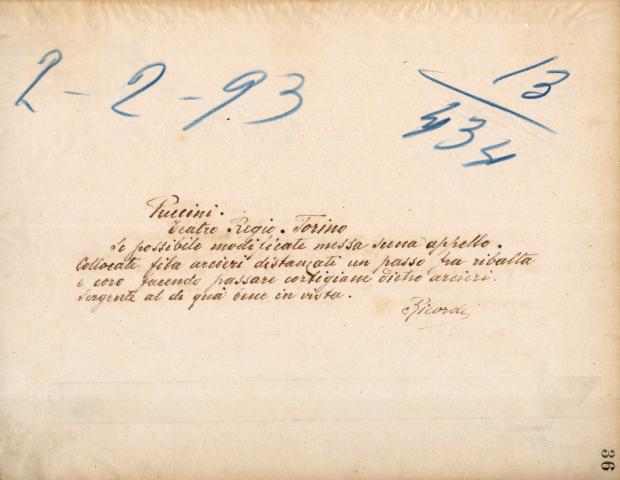 2-2-93
13
434
Puccini.
Teatro Regio. Torino
Se possibile modificate messa scena appello.
Collocate fila arcieri distanziati un passo fra ribalta
e coro facendo passare cortigiane dietro arcieri.
Sergente al di quà bene in vista.
Ricordi
36